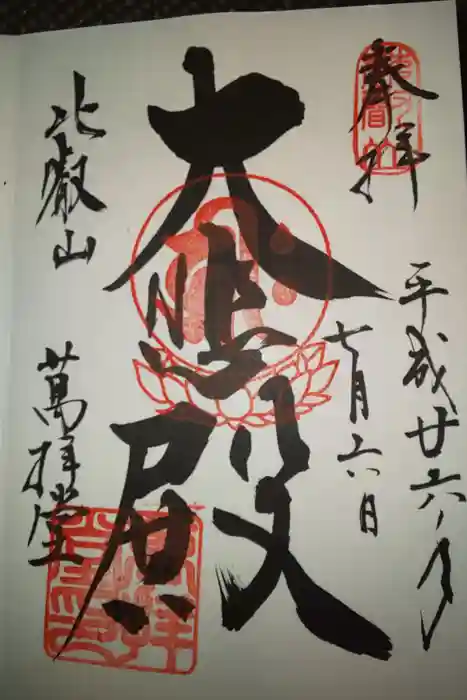 奉拝
平成廿六年
七月六日
大悲殿
比叡山
萬拝堂